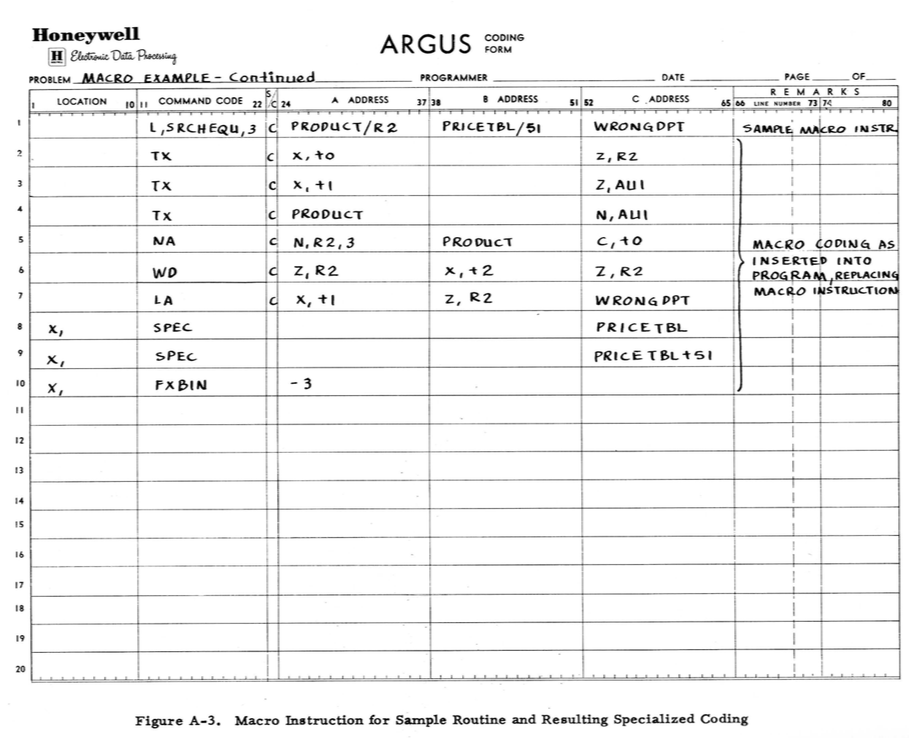 Honeywell
H Electronic Data Processing
ARGUS CODING FORM
PROBLEM MACRO EXAMPLE - Continued PROGRAMMER DATE PAGE OF
1 LOCATION 10 11 COMMAND CODE 22 S/C 24 A ADDRESS 37 38 B ADDRESS 51 52 C ADDRESS 65 66 REMARKS LINE NUMBER 73 74 80
1 L,SRCHEQU,3 C PRODUCT/R2 PRICETBL/51 WRONGDPT SAMPLE MACRO INSTR
2 TX C X,+0 Z,R2
3 TX C X,+1 Z,AU1
4 TX C PRODUCT N,AU1
5 NA C N,R2,3 PRODUCT C,+0 MACRO CODING AS
6 WD C Z,R2 X,+2 Z,R2 INSERTED INTO PROGRAM, REPLACING
7 LA C X,+1 Z,R2 WRONGDPT MACRO INSTRUCTION
8 X, SPEC PRICETBL
9 X, SPEC PRICETBL+51
10 X, FXBIN -3
11
12
13
14
15
16
17
18
19
20
Figure A-3. Macro Instruction for Sample Routine and Resulting Specialized Coding